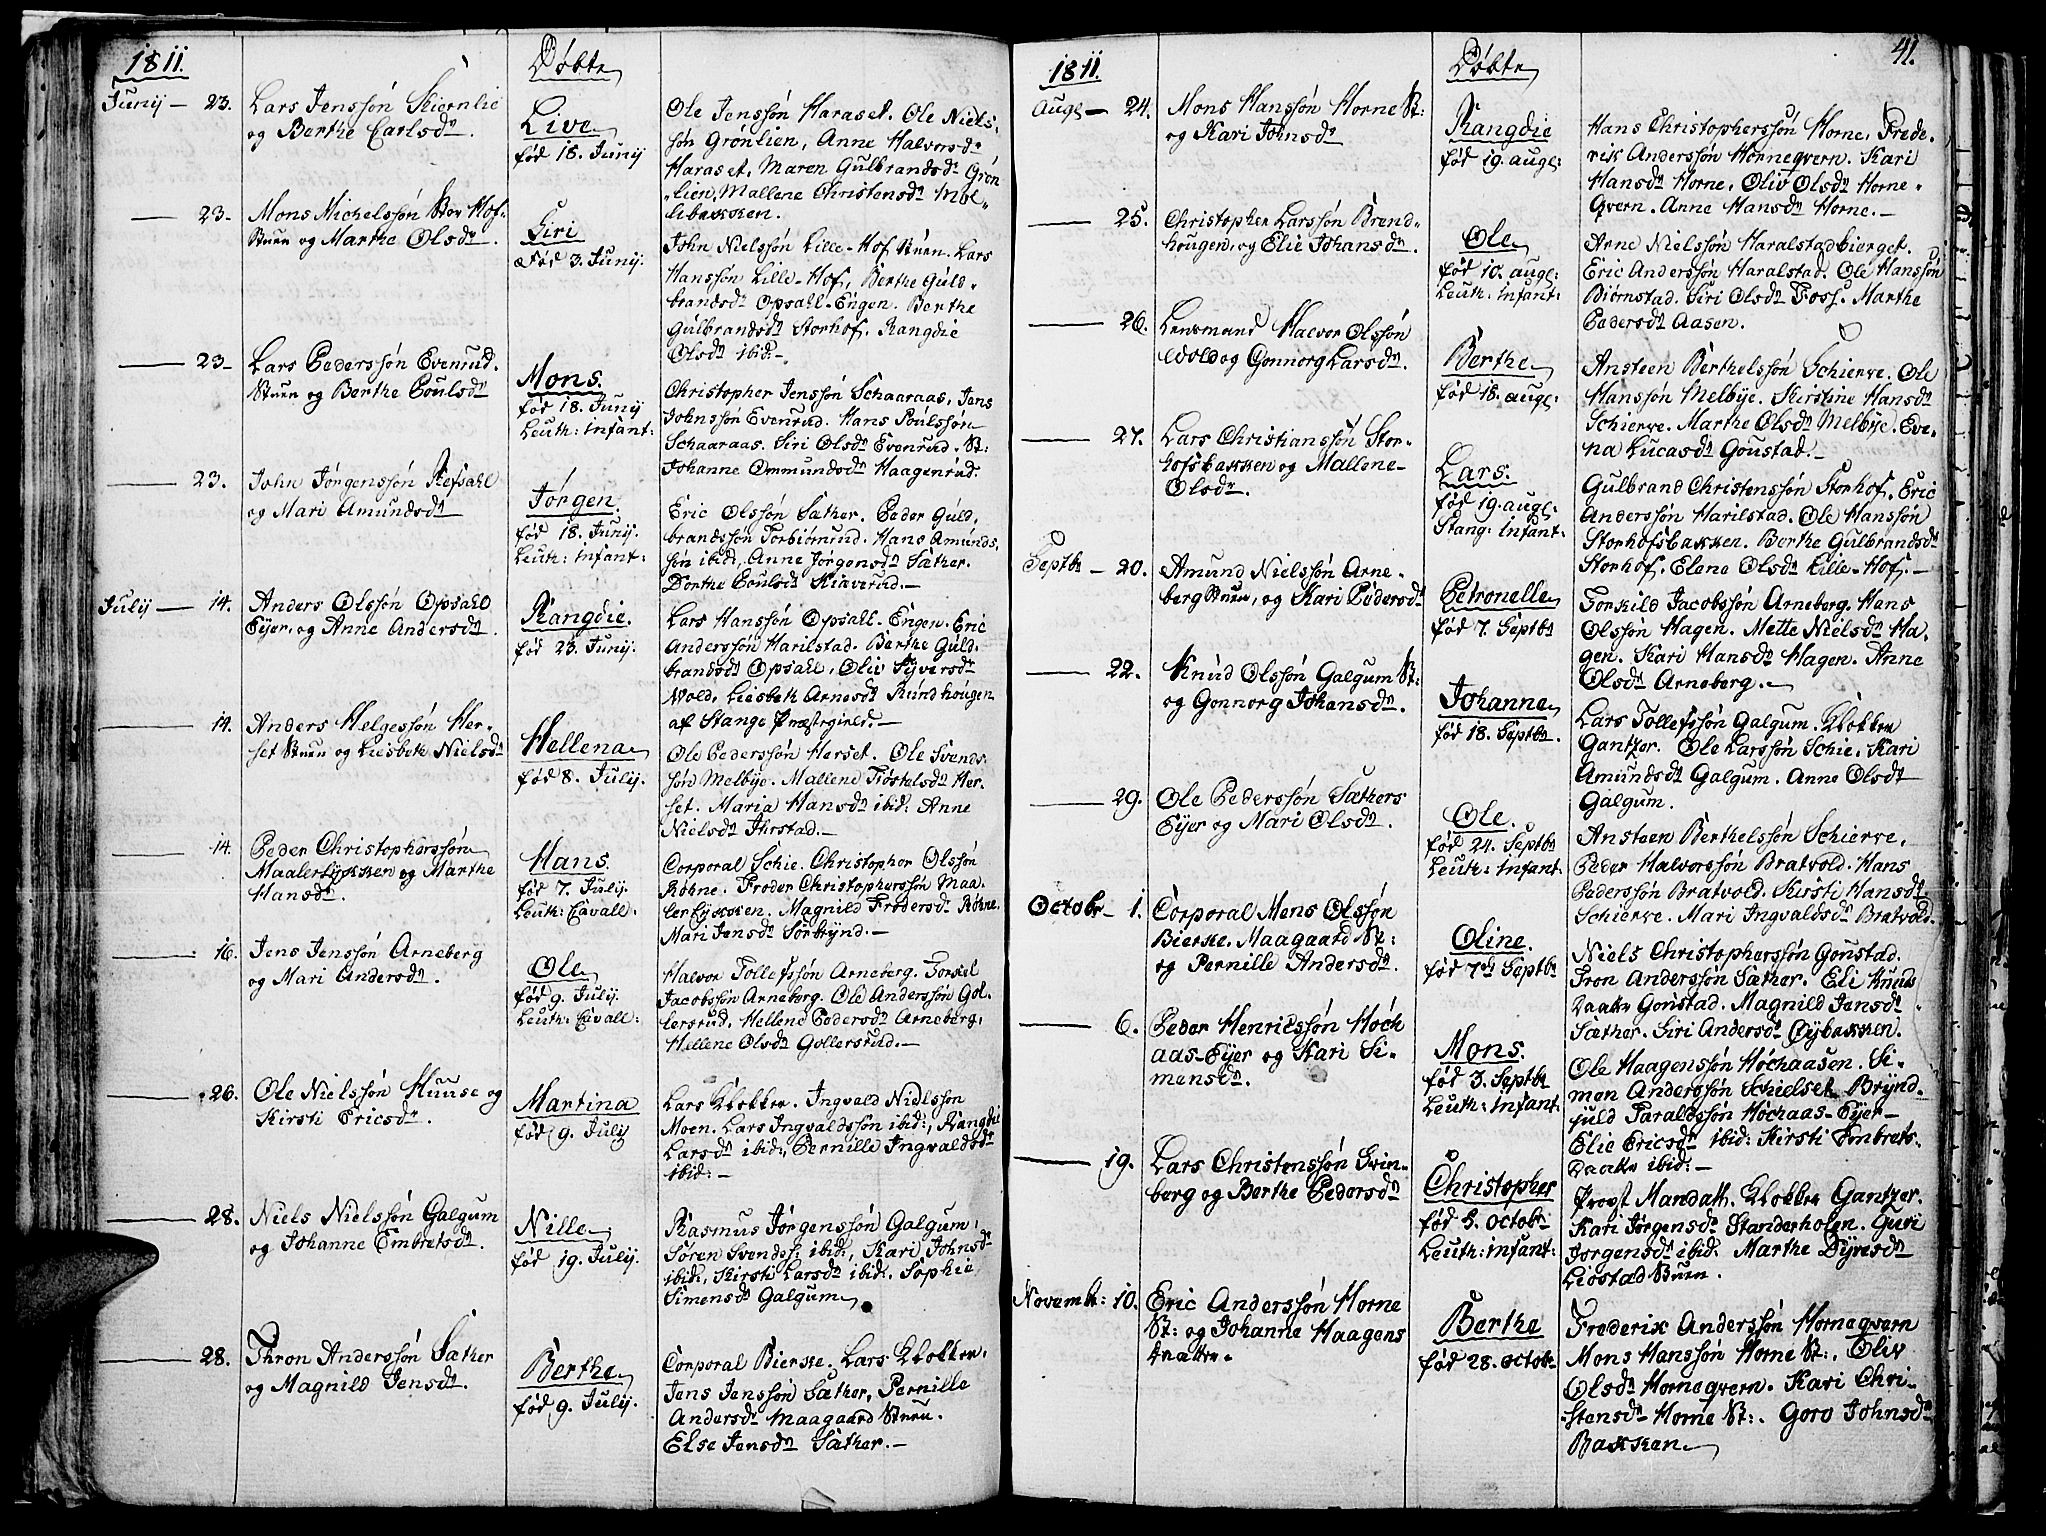 1811.
Døbte
Junij — 23. Lars Jenssøn Skiernlie
og Berthe Carlsdr.
Live
fød 18. Junij
Ole Jenssøn Haraset. Ole Niels-
søn Grønlien, Anne Halvorsdr
Haraset, Maren Gulbrandsdr Grøn-
lien, Mallene Christensdr Møl-
lebakken.
— 23. Mons Michelssøn Stor Hof-
Stuen og Marthe Olsdr.
Siri
Fød 3. Junij.
John Nielssøn Lille-Hof Stuen. Lars
Hanssøn Lille-Hof, Berthe Guld-
brandsdr Opsahl-Engen. Berthe
Gulbrandsdr Storhof. Rangdie
Olsdr ibid.—
— 23. Lars Pederssøn Evenrud-
Stuen og Berthe Poulsdr
Mons.
fød 18. Junij
Leuth: Infant:
Christopher Jenssøn Schaaraas, Jens
Johnssøn Evenrud. Hans Poulssøn
Schaaraas. Siri Olsdr Evenrud-St:
Johanne Ommundsdr Haagenrud.
— 23. John Jørgenssøn Refsahl
og Mari Amundsdr
Jørgen.
fød 18. Junij.
Leuth: infant:
Eric Olssøn Sæther. Peder Guld-
brandssøn Torbiørnrud. Hans Amunds-
søn ibid:, Anne Jørgensdr Sæther.
Dorthe Poulsdr Kiaverud.—
Julij — 14. Anders Olssøn Opsahl
Eyer, og Anne Andersdr.
Rangdie.
fød 23. Junij.
Lars Hanssøn Opsahl-Engen. Eric
Anderssøn Harilstad. Berthe Guld-
brandsdr Opsahl, Oliv Syversdr
Wold, Liesbeth Arnesdr Rundhougen
af Stange Præstegield.—
— 14. Anders Helgessøn Her-
set Stuen og Liesbeth Nielsdr
Hellena
fød 8. Julij.
Ole Pederssøn Herset. Ole Svends-
søn Melbye. Mallene Tøstelsdr Her-
set. Maria Hansdr ibid: Anne
Nielsdr Ihrstad.—
— 14. Peder Christopherssøn
Maalerløkken og Marthe
Hansdr.
Hans.
fød 7. Julij.
Leuth: Cavall:
Corporal Schie. Christopher Olssøn
Røhne. Froder Christopherssøn Maa-
lerløkken. Magnild Frodersdr Røhne.
Mari Jensdr Sørbrynd.—
— 16. Jens Jenssøn Arneberg
og Mari Andersdr.
Ole
fød 9. Julij.
Leuth: Cavall:
Halvor Tollefssøn Arneberg. Torkel
Jacobssøn Arneberg. Ole Anderssøn Gol-
lersrud. Hellene Pedersdr Arneberg.
Hellene Olsdr Gollersrud.—
— 26. Ole Nielssøn Huuse og
Kirsti Ericsdr.
Martina
fød 9. Julij
Lars Klokker. Ingvald Nielssøn
Moen. Lars Ingvaldssøn ibid:, Rangdie
Larsdr ibid:, Pernille Ingvaldsdr
ibid:—
— 28. Niels Nielssøn Galgum
og Johanne Embretsdr.
Nille
fød 19. Julij.
Rasmus Jørgenssøn Galgum.
Søren Svends: ibid:, Kari Johnsdr
ibid:, Kirsti Larsdr ibid:. Sophie
Simensdr Galgum.
— 28. Thron Anderssøn Sæther
og Magnild Jensdr.
Berthe
fød 9. Julij.
Corporal Bierke. Lars Klokker.
Jens Jenssøn Sæther, Pernille
Andersdr Maagaard Stuen.
Else Jensdr Sæther.—
41.
1811.
Døbte
Aug: — 24. Mons Hanssøn Horne St:
og Kari Johnsdr
Rangdie
fød 19. aug:
Hans Christopherssøn Horne, Frede-
rik Anderssøn Horneqvern. Kari
Hansdr Horne, Oliv Olsdr Horne-
Qvern. Anne Hansdr Horne.—
— 25. Christopher Larssøn Brend-
hougen, og Elie Johansdr.
Ole
fød 10. aug:
Leuth: Infant:
Arne Nielssøn Haralstadbierget.
Eric Anderssøn Haralstad. Ole Hanssøn
Biørnstad. Siri Olsdr Foss. Marthe
Pedersdr Aasen.
— 26. Lensmand Halvor Olssøn
Wold og Gonnorg Larsdr.
Berthe
fød 18. aug:
Ansteen Berthelssøn Schierve. Ole
Hanssøn Melbye. Kirstine Hansdr
Schierve. Marthe Olsdr Melbye. Eve-
na Lucasdr Goustad.—
— 27. Lars Christianssøn Stor-
hofsbakken og Mallene
Olsdr.
Lars.
fød 19. aug:
Stang: Infant:
Gulbrand Christenssøn Storhof, Eric
Anderssøn Harilstad. Ole Hanssøn
Storhofsbakken. Berthe Gulbrandsdr
Storhof, Elene Olsdr Lille-Hof.—
Septbr — 20. Amund Nielssøn Arne-
berg Stuen, og Kari Pedersdr
Petronelle
fød 7. Septbr
Torkild Jacobssøn Arneberg. Hans
Olssøn Hagen. Mette Nielsdr Ha-
gen. Kari Hansdr Hagen. Anne
Olsdr Arneberg.
— 22. Knud Olssøn Galgum St:
og Gonnorg Johansdr.
Johanne
fød 18. Septbr.
Lars Tollefssøn Galgum. Klokker
Gantzer. Ole Larssøn Schie. Kari
Amundsdr Galgum. Anne Olsdr
Galgum.
— 29. Ole Pederssøn Sæthers
Eyer og Mari Olsdr.
Ole.
fød 24. Septbr
Leuth: Infant.
Ansteen Berthelssøn Schierve.
Peder Halvorssøn Bratvold. Hans
Pederssøn Bratvold. Kirsti Hansdr
Schierve. Mari Ingvaldsdr Bratvold.
Octobr — 1. Corporal Mons Olssøn
Bierke. Maagaard St:
og Pernille Andersdr.
Oline.
fød 7de Septbr
Niels Christopherssøn Gonstad.
Tron Anderssøn Sæther. Eli Knuds
Daatter Gonstad. Magnild Jensdr
Sæther. Siri Andersdr Dybakken.
— 6. Peder Henricssøn Høch
aas-Eyer og Kari Si-
mensdr.
Mons.
fød 3. Septbr
Leuth: Infant.
Ole Haagenssøn Høchaasen. Si-
men Anderssøn Schielset. Brynd-
juld Taraldssøn Høchaas-Eyer-
Elie Ericsdr ibid: Kirsti Embrets-
Daatter ibid:—
— 19. Lars Christenssøn Svin-
berg og Berthe Pedersdr
Christopher
fød 5. Octob:
Leuth: infant:
Provst Mandall. Klokker Gantzer.
Kari Jørgensdr Standerholen. Guri
Jørgensdr ibid. Marthe Syvesdr
Liostad Stuen.
Novembr: 10. Eric Anderssøn Horne
St: og Johanne Haagens
Daatter.
Berthe
fød 28. octob:
Frederik Anderssøn Horneqvern
Mons Hanssøn Horne St:, Oliv
Olsdr Horneqvern. Kari Chri-
stensdr Horne St:. Goro Johnsdr
Bakken